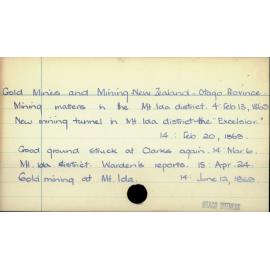 Gold Mines and Mining-New Zealand - Otago Province.
Mining matters in the Mt. Ida district. 4: Feb 13, 1869
New mining tunnel in Mt Ida district-the "Excelsior."
14: Feb 20, 1869.
Good ground struck at Clarkes again. 14: Mar 6.
Mt. Ida district. Warden's reports. 15: Apr. 24.
Gold mining at Mt. Ida. 14: June 12, 1869.
OTAGO WITNESS